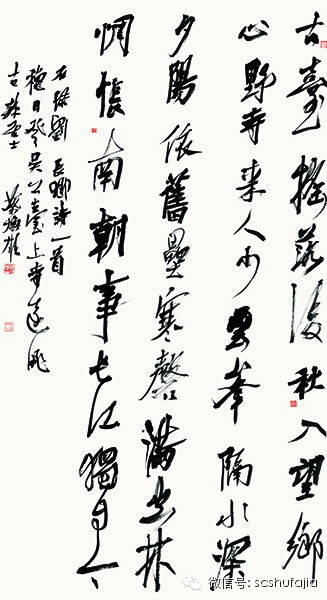 古臺搖落後秋入望鄉
心野寺来人少雲峯隔水深
夕陽依舊壘寒磬滿空林
惆悵南朝事长江獨自今
右録劉長卿詩一首
穐日登吴公臺上寺遠眺
微信号: scshufajia